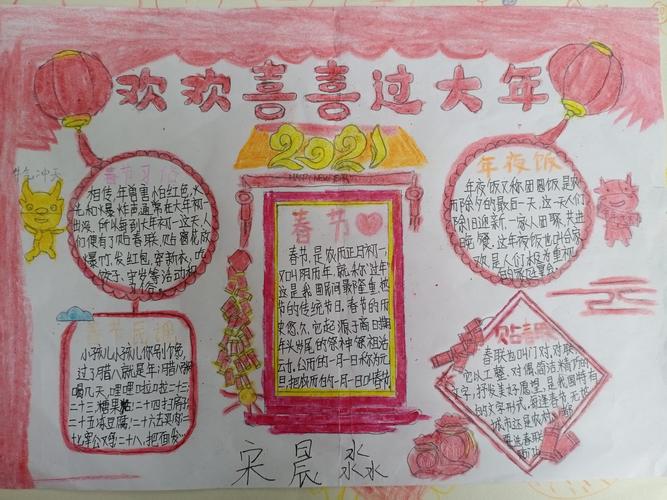 欢欢喜喜过大年
2021
HAPPY NEW YEAR
牛气冲天
春节习俗
相传,年兽害怕红色,火
光和爆炸声,通常在大年初一
出没,所以每到大年初一这天,人
们便有了贴春联,贴窗花,放
爆竹,发红包,穿新衣,吃
饺子,守岁等活动和
习俗。
春节
春节,是农历正月初一,
又叫阴历年,就称“过年”
这是我国民间最隆重,最热
节的传统节日,春节的历史
悠久,它起源于商日期
年头岁尾的祭神祭祖活
云力,公历的一月一日称为元
旦,把农历的一月一日叫春节
年夜饭
年夜饭又称团圆饭是农
历除夕的最后一天,这一天人们
除旧迎新,一家人团聚,共进
晚餐,这年夜饭也叫合家
欢,是人们极为重视
的家庭宴会
春节民谣
小孩儿小孩儿你别馋,
过了腊八就是年,腊八粥
喝几天,哩哩啦啦二十三,
二十三,糖果粘,二十四扫房子
二十五冻豆腐,二十六去买肉,二
十七宰公鸡,二十八,把面发
贴春联
春联也叫门对,对联
它以工整、对偶、简洁精巧的
文字,抒发美好愿望,是我国特有
的文学形式,每逢春节,无论
城市还是农村
要选春联
宋晨淼